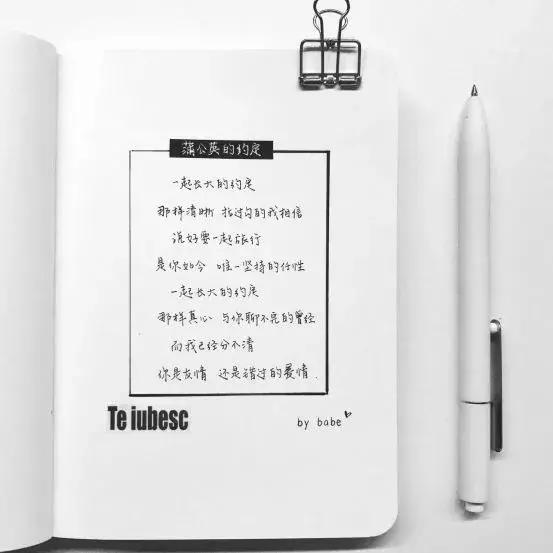 蒲公英的约定
一起长大的约定
那样清晰 拉过勾的我相信
说好要一起旅行
是你如今 唯一坚持的任性
一起长大的约定
那样真心 与你聊不完的曾经
而我已经分不清
你是友情 还是错过的爱情.
Te iubesc
by babe